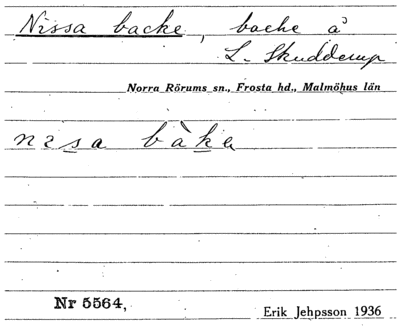 Nissa backe, backe å
L. Skudderup
Norra Rörums sn., Frosta hd., Malmöhus län
nisa bàka
Nr 5564,
Erik Jehpsson 1936